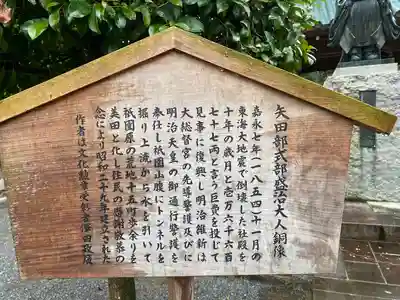 矢田部式部盛治大人銅像
嘉永七年(一八五四)十一月の
東海大地震で倒壊した社殿を
十年の歳月と壱万六千六百
七十七両と言う巨費を投じて
見事に復興し明治維新は
大総督宮の先導警護及びに
明治天皇の御通行警護を
奉仕し祇園山腹にトンネルを
掘り上流から水を引いて
祇園原の荒地十五町歩余りを
美田と化し住民の感謝敬慕の
念により昭和三十九年建立された
作者は文化勲章受章者澤田政廣